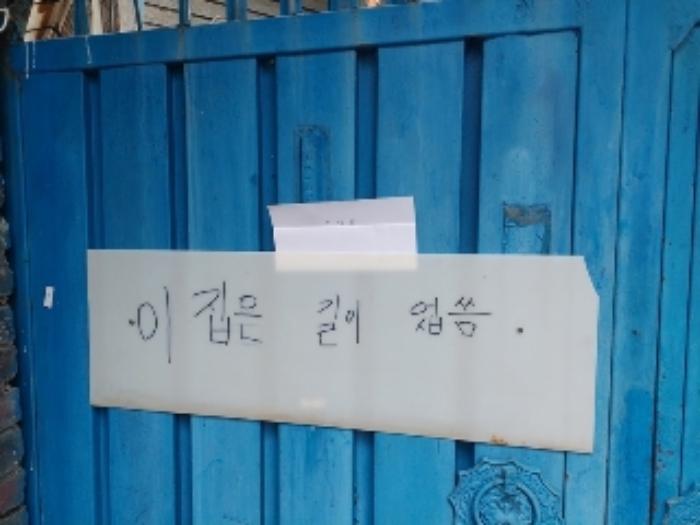 ·이 집은 길이 업씀.